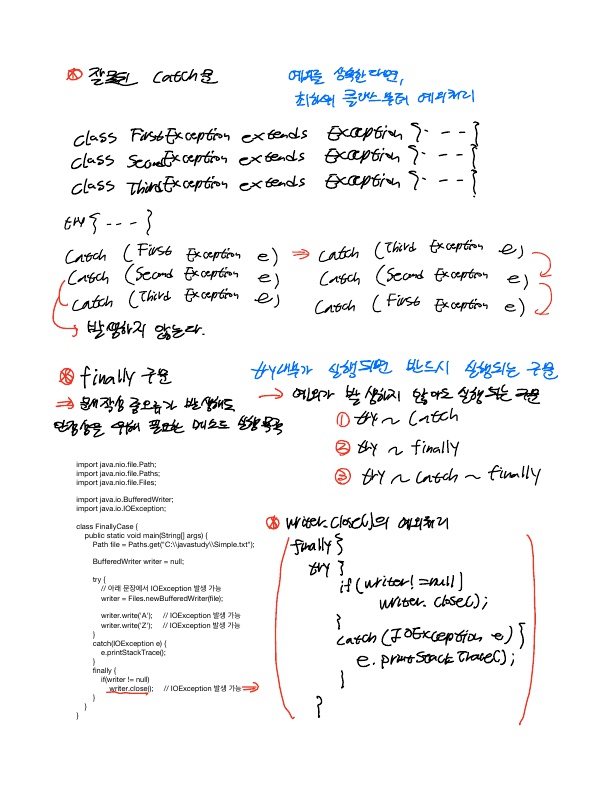 ※ 잘못된 catch문
예외를 상속한다면,
최하위 클래스부터 예외처리
class FirstException extends Exception {---}
class SecondException extends Exception {---}
class ThirdException extends Exception {---}
try { --- }
catch (First Exception e)
catch (Second Exception e)
catch (Third Exception e)
→ 발생하지 않는다.
⇒ catch (Third Exception e)
catch (Second Exception e)
catch (First Exception e)
※ finally 구문
try내부가 실행되면 반드시 실행되는 구문
⇒ 문제작성 중 오류가 발생해도
안정성을 위해 필요한 메소드 실행목적
→ 예외가 발생하지 않아도 실행되는 구문
① try ~ catch
② try ~ finally
③ try ~ catch ~ finally
import java.nio.file.Path;
import java.nio.file.Paths;
import java.nio.file.Files;
import java.io.BufferedWriter;
import java.io.IOException;
class FinallyCase {
public static void main(String[] args) {
Path file = Paths.get("C:\\javastudy\\Simple.txt");
BufferedWriter writer = null;
try {
// 아래 문장에서 IOException 발생 가능
writer = Files.newBufferedWriter(file);
writer.write('A'); // IOException 발생 가능
writer.write('Z'); // IOException 발생 가능
}
catch(IOException e) {
e.printStackTrace();
}
finally {
if(writer != null)
writer.close(); // IOException 발생 가능 ⇒
}
}
}
※ writer.close()의 예외처리
finally {
try }
if(writer!=null)
writer.close();
}
catch(IOException e) {
e.printStackTrace();
}
}